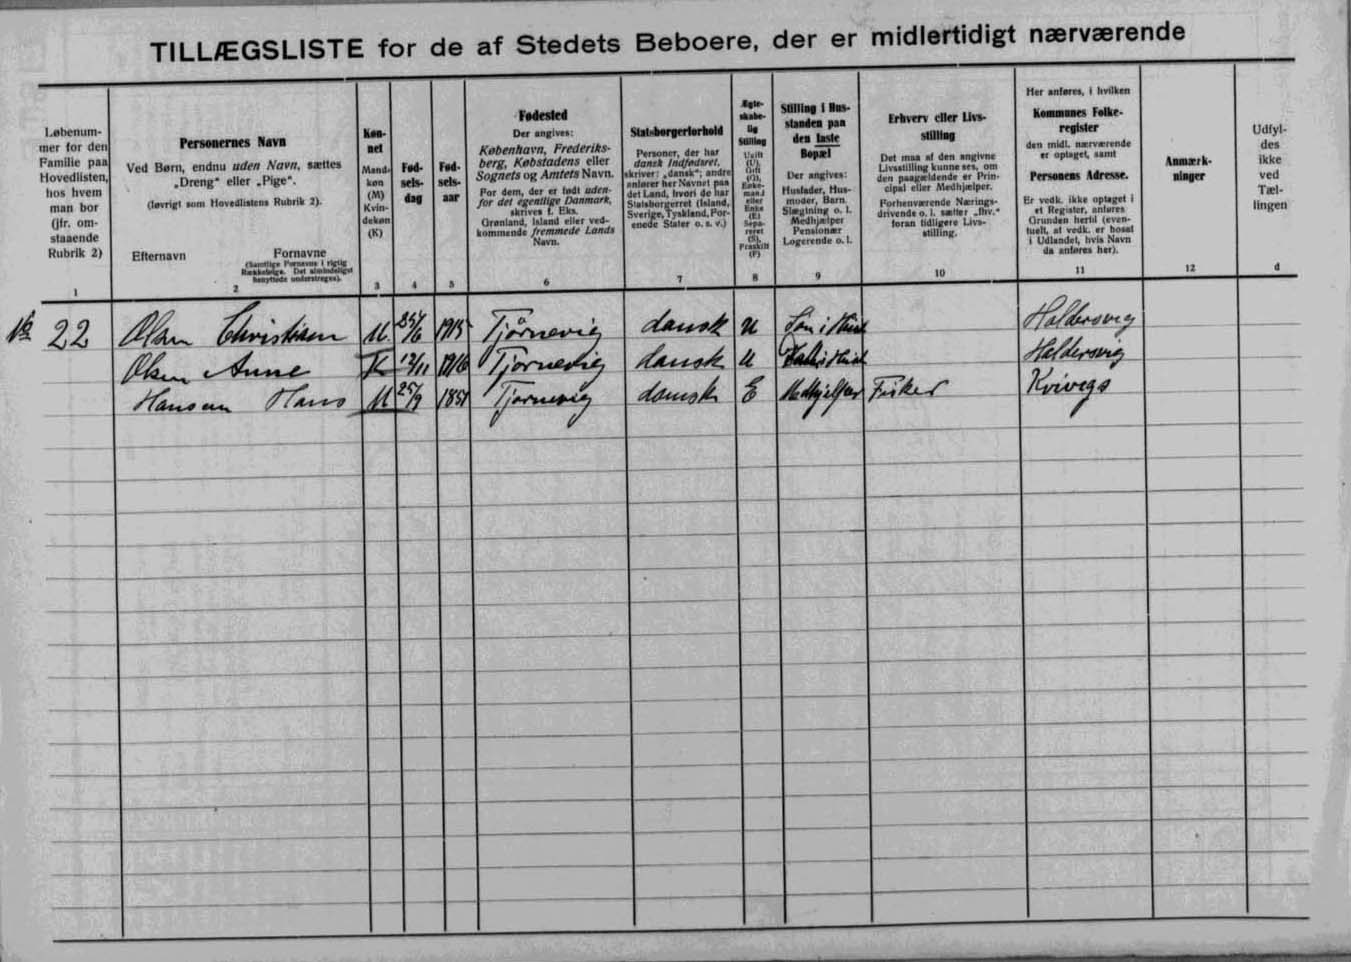 TILLÆGSLISTE for de af Stedets Beboere, der er midlertidigt nærværende
Løbenum-
mer for den
Familie paa
Hovedlisten,
hos hvem
man bor
(jfr. om-
staaende
Rubrik 2)
1
Personernes Navn
Ved Børn, endnu uden Navn, sættes
„Dreng“ eller „Pige“.
(Iøvrigt som Hovedlistens Rubrik 2).
Efternavn
Fornavne
(Samtlige Fornavne i rigtig
Rækkefølge. Det almindeligst
benyttede understreges).
2
Køn-
net
Mand-
køn
(M)
Kvin-
dekøn
(K)
3
Fød-
sels-
dag
4
Fød-
sels-
aar
5
Fødested
Der angives:
København, Frederiks-
berg, Købstadens eller
Sognets og Amtets Navn.
For dem, der er født uden-
for det egentlige Danmark,
skrives f. Eks.
Grønland, Island eller ved-
kommende fremmede Lands
Navn.
6
Statsborgerforhold
Personer, der har
dansk Indfødsret,
skriver: „dansk“; andre
anfører her Navnet paa
det Land, hvori de har
Statsborgerret (Island,
Sverige, Tyskland, For-
enede Stater o. s. v.)
7
Ægte-
skabe-
lig
Stilling
Ugift
(U),
Gift
(G),
Enke-
mand
eller
Enke
(E)
Sepa-
reret
(S),
Fraskilt
(F)
8
Stilling i Hus-
standen paa
den faste
Bopæl
Der angives:
Husfader, Hus-
moder, Barn,
Slægtning o. l.
Medhjælper
Pensionær
Logerende o. l.
9
Erhverv eller Livs-
stilling
Det maa af den angivne
Livsstilling kunne ses, om
den paagældende er Prin-
cipal eller Medhjælper.
Forhenværende Nærings-
drivende o. l. sætter „fhv.“
foran tidligere Livs-
stilling.
10
Her anføres, i hvilken
Kommunes Folke-
register
den midl. nærværende
er optaget, samt
Personens Adresse.
Er vedk. ikke optaget i
et Register, anføres
Grunden hertil (even-
tuelt, at vedk. er bosat
i Udlandet, hvis Navn
da anføres her).
11
Anmærk-
ninger
12
Udfyl-
des
ikke
ved
Tæl-
lingen
d
No 22 Olsen Christian M. 25/6 1915 Tjörnevig dansk U Søn i Huset Haldersvig
Olsen Anne K 12/11 1916 Tjornevig dansk U i Huset Haldersvig
Hansen Hans M 25/9 1851 Tjornevig dansk E Medhjelper Fisker Kvivigs